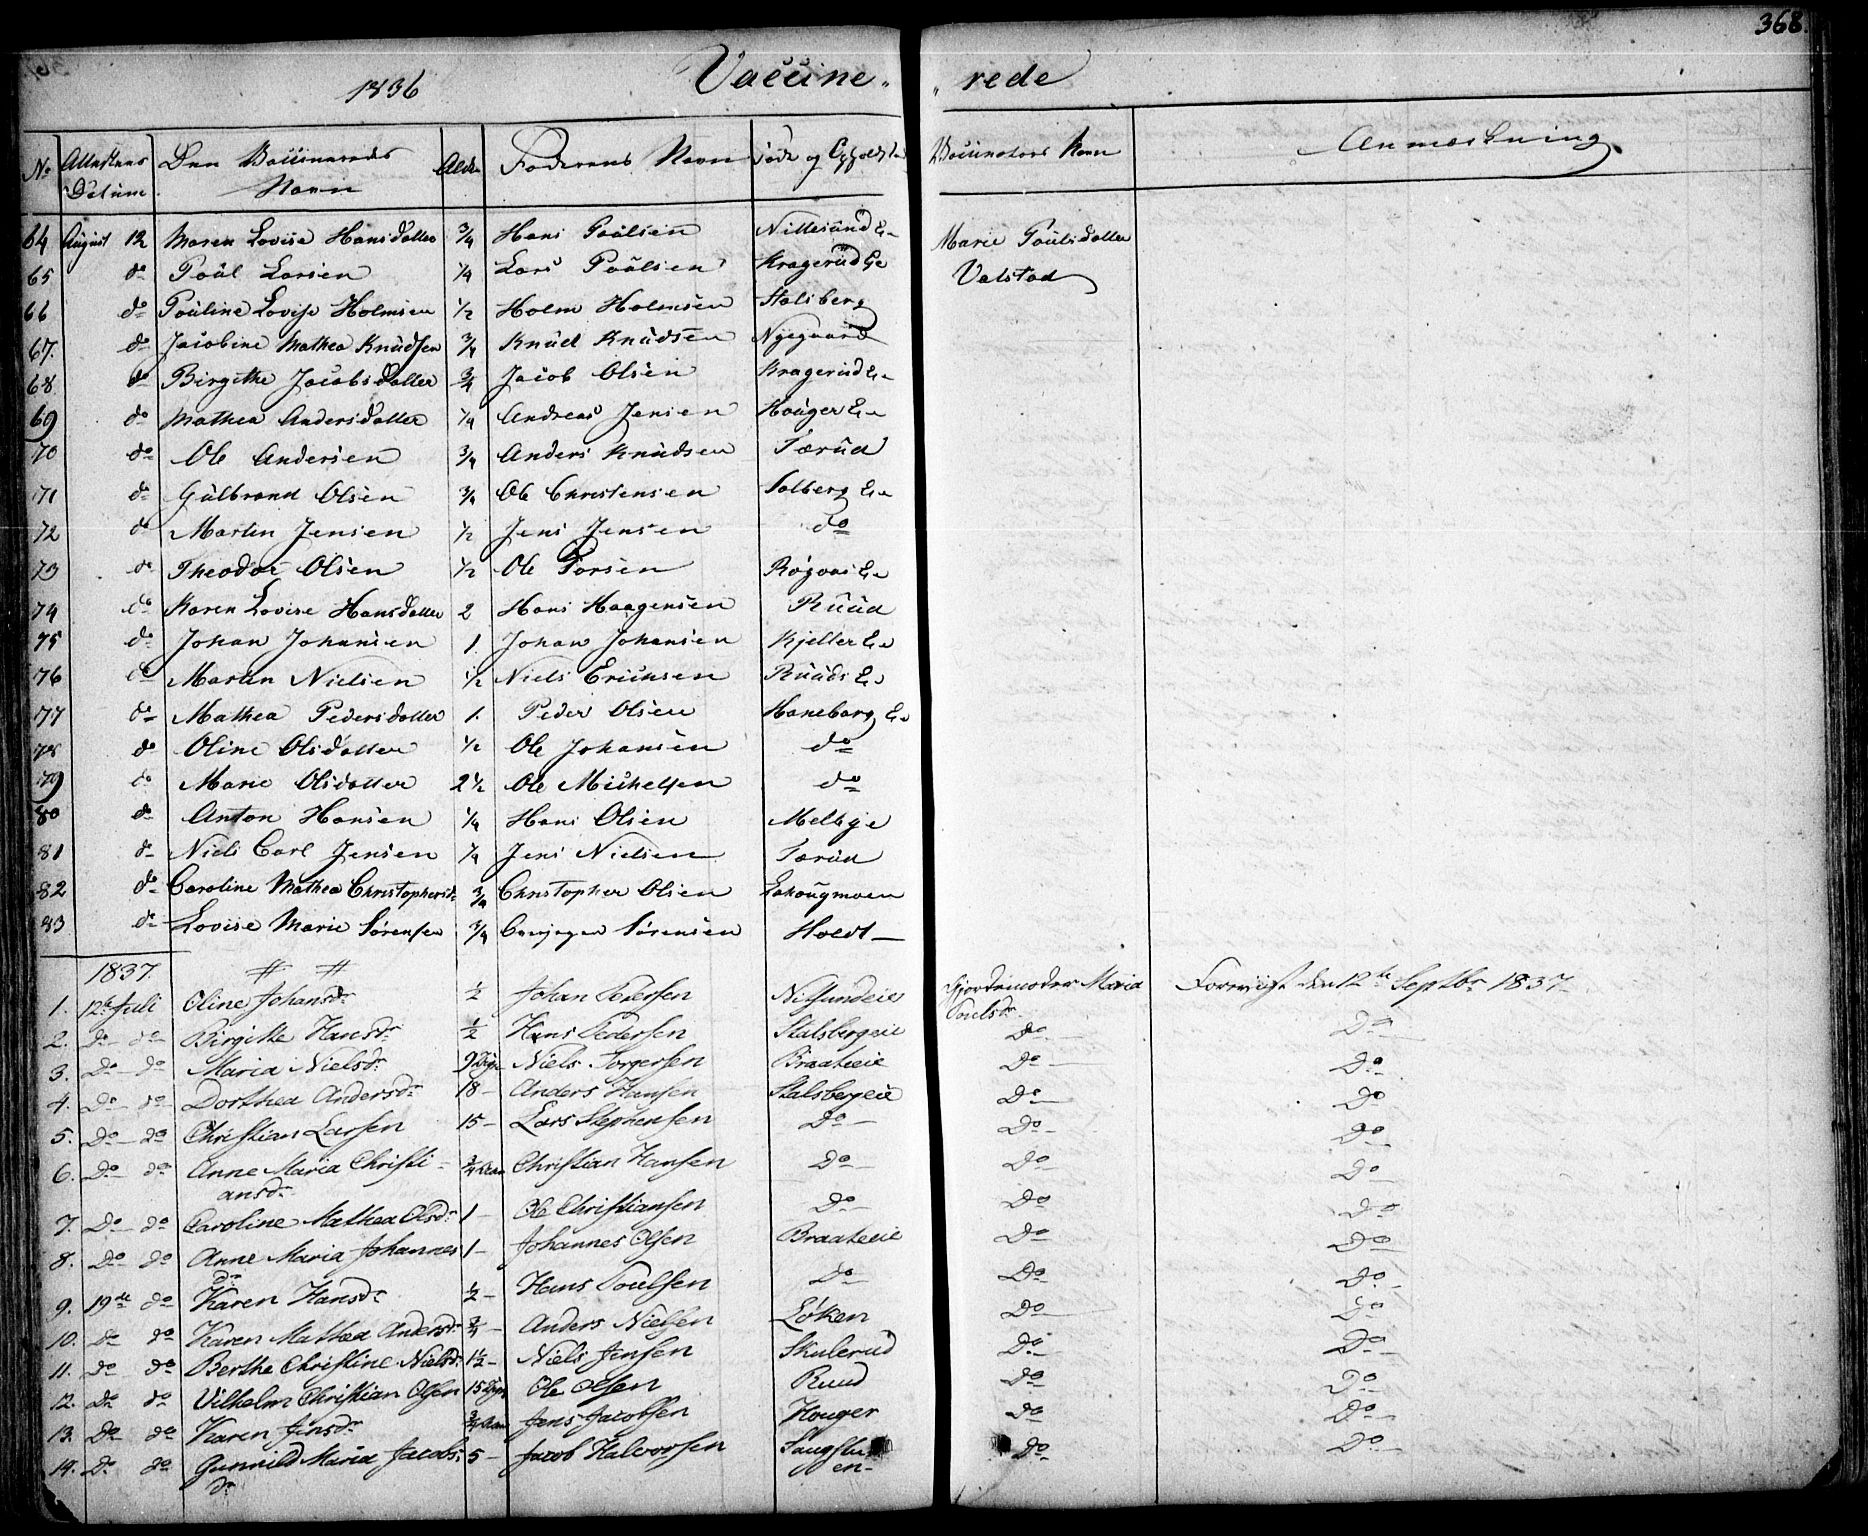 368.
1836 Vaccine- -rede
No Attestens Datum Den Vaccineredes Navn Alder Faderens Navn Føde og Opholdsted Vaccinateurs Navn Anmærkning
64 August 12 Maren Lovise Hansdatter 3/4 Hans Poulsen Nittesund Eie Marie Poulsdatter
65 do Poul Larsen 1/4 Lars Poulsen Kragerud Eie Valstad
66 do Pouline Lovise Holmsen 1/2 Holm Holmsen Stalsberg
67. do Jacobine Mathea Knudsen 3/4 Knud Knudsen Nyegaard
68 do Birgithe Jacobsdatter 3/4 Jacob Olsen Kragerud Eie
69 do Mathea Andersdatter 1/4 Andreas Jensen Houger Eie
70 do Ole Andersen 3/4 Anders Knudsen Tærud
71 do Gulbrand Olsen 3/4 Ole Christensen Solberg Eie
72 do Martin Jensen 1/2 Jens Jensen do
73 do Theodor Olsen 1/2 Ole Torsen Eie
74 do Karen Lovise Hansdatter 2 Hans Haagensen Ruud
75 do Johan Johansen 1. Johan Johansen Kjeller Eie
76 do Martin Nielsen 1/2 Niels Ericksen Ruuds Eie
77 do Mathea Pedersdatter 1. Peder Olsen Haneborg Eie
78 do Oline Olsdatter 1/2 Ole Johansen do
79 do Marie Olsdatter 2 1/2 Ole Michelsen do
80 do Anton Hansen 1/4 Hans Olsen Melbye
81 do Niels Carl Jensen 1/4 Jens Nielsen Tærud
82 do Caroline Mathea Christophersd. 3/4 Christopher Olsen
83 do Lovise Marie Sørensen 3/4 Sørensen Hvedt
1837.
1. 12te Juli Oline Johansdr 1/2 Johan Pedersen Nitsundeie Gjordemoder Maria Forevist den 12te Septbr 1837
Poulsdr
2. Do do Birgitte Hansdr 1/2 Hans Pedersen Stalsbergeie Do Do
3. Do do Maria Nielsdr 9 Dage Niels Torgersen Braateeie Do Do
4. Do do Dorthea Andersdr 18 - Anders Hansen Stalsbergeie Do Do
5. Do do Christian Larsen 15 - Lars Stephensen Do Do Do
6. Do do Anne Maria Christi- 3/4 Aar Christian Hansen Do Do Do
ansdr
7. Do do Caroline Mathea Olsdr 1 - Ole Christiansen Do Do Do
8. Do do Anne Maria Johannes 1 - Johannes Olsen Braateeie Do Do
dr
9. 19de do Karen Hansdr 1/2 - Hans Poulsen Do Do Do
10. Do do Karen Mathea Andersdr 3/4 - Anders Nielsen Løken Do Do
11. Do do Berthe Christine Nielsdr 1 1/2 - Niels Jensen Skulerud Do Do
12. Do do Vilhelm Christian Olsen 15 Dage Ole Olsen Ruud Do Do
13. Do do Karen Jensdr 3/4 Aar Jens Jacobsen Houger Do Do
14. Do do Gunnild Maria Jacobs 5 - Jacob Halvorsen Do Do
dr en-